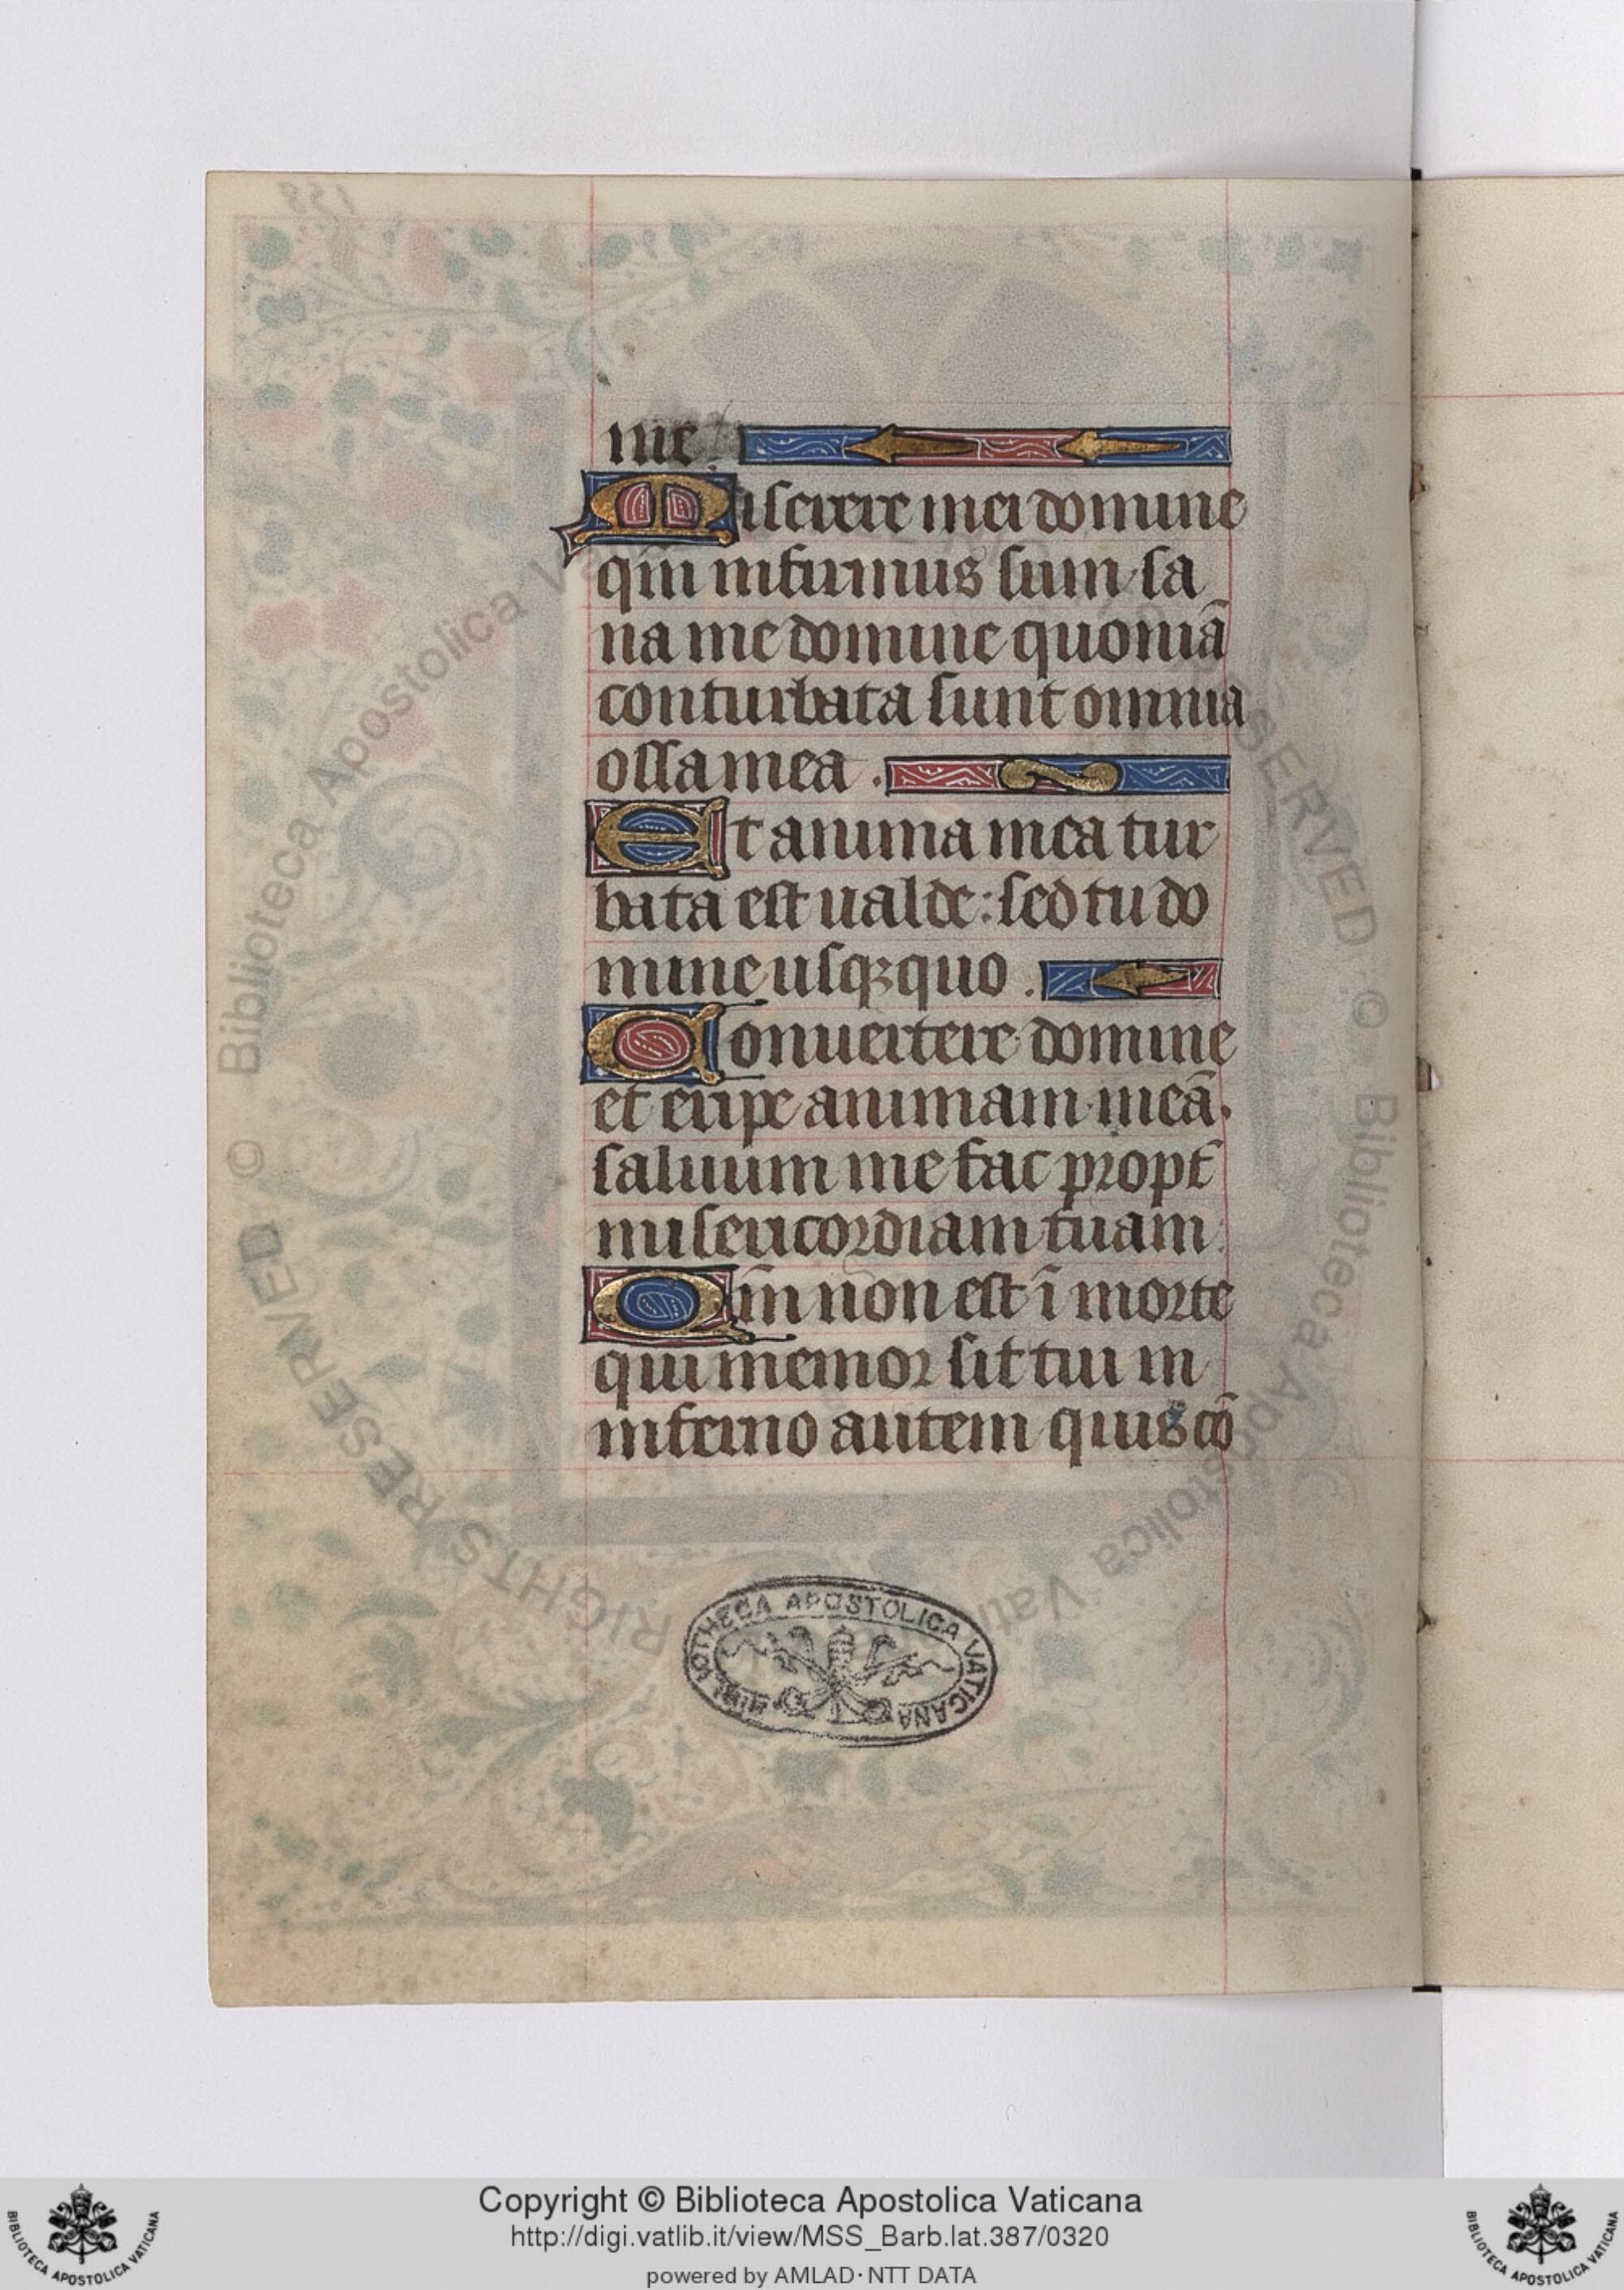 me.
Miserere mei domine
qm̄ infirmus sum sa
na me domine quoniā
conturbata sunt omnia
ossa mea.
Et anima mea tur
bata est ualde: sed tu do
mine usqꝫ quo.
Conuertere domine
et eripe animam meā.
saluum me fac propt̄
misericordiam tuam.
Qm̄ non est ī morte
qui memor sit tui in
inferno autem quis cō
BIBLIOTHECA APOSTOLICA VATICANA
© Biblioteca Apostolica
RIGHTS RESERVED
© Biblioteca Apostolica Vaticana
Copyright © Biblioteca Apostolica Vaticana
http://digi.vatlib.it/view/MSS_Barb.lat.387/0320
powered by AMLAD·NTT DATA
BIBLIOTECA APOSTOLICA VATICANA
BIBLIOTECA APOSTOLICA VATICANA